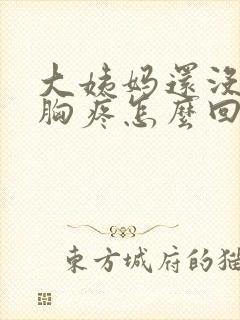 大姨妈還没
胸疼怎麼回
東方城府的猫